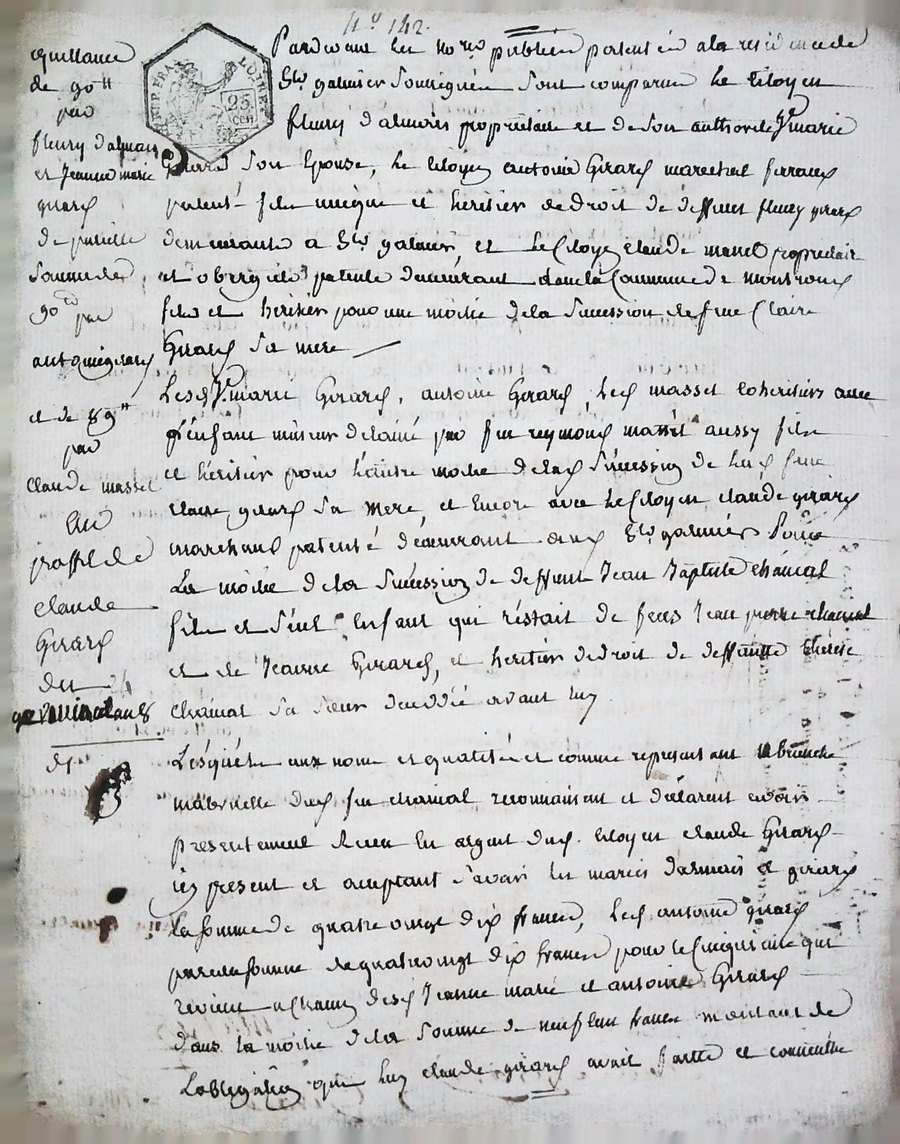 N° 142.
quittance
de 90tt
par
fleury dalmais
et Jeanne marie
girard
de pareille
somme de
90tt par
antoine girard
et de 89tt
par
Claude massel
au
proffit de
claude
Girard
du
Pardevant les no.res publics patentés à la residence de
St. galmier soussignés sont comparus le Citoyen
fleury dalmais propriétaire et de son authorité Je. marie
Girard son Epouse, le Citoyen antoine Girard marechal ferrant
patenté fils unique et heritier de droit de deffunt fleury girard
demeurants a St. galmier, et le Citoyen Claude massel propriétaire
et patenté demeurant dans la Commune de montrond
fils et heritier pour une moitié de la succession de feue Claire
Girard sa mere
Lesd. Je. marie Girard, antoine Girard, led. massel coheritiers avec
l'enfant mineur delaissé par feu reymond massel aussy fils
et héritier pour l'autre moitié de lad. succession de lad. feue
claire girard sa mere, et encore avec le Citoyen claude girard
marchand patenté demeurant aud. St. galmier
La moitié de la succession de deffunt Jean Baptiste chaical
fils et seul Enfant qui restait de feus Jean pierre chaical
et de Jeanne Girard, et heritier de droit de deffuntte thérèse
chaical sa soeur decedée avant luy
Lesquels aux noms et qualités et comme representant la branche
maternelle dud. feu chaical reconnaissent et déclarent avoir
presentement reçu en argent dud. Citoyen claude Girard
icy present et acceptant savoir les mariés dalmais et girard
la somme de quatre vingt dix francs, led. antoine girard
pareille somme de quatre vingt dix francs pour le cinquieme qui
revient a chacun desd. Jeanne marie et antoine Girard
dans la moitié de la somme de neuf cent francs montant de
L'obligation que led. claude girard avait passée et consentie